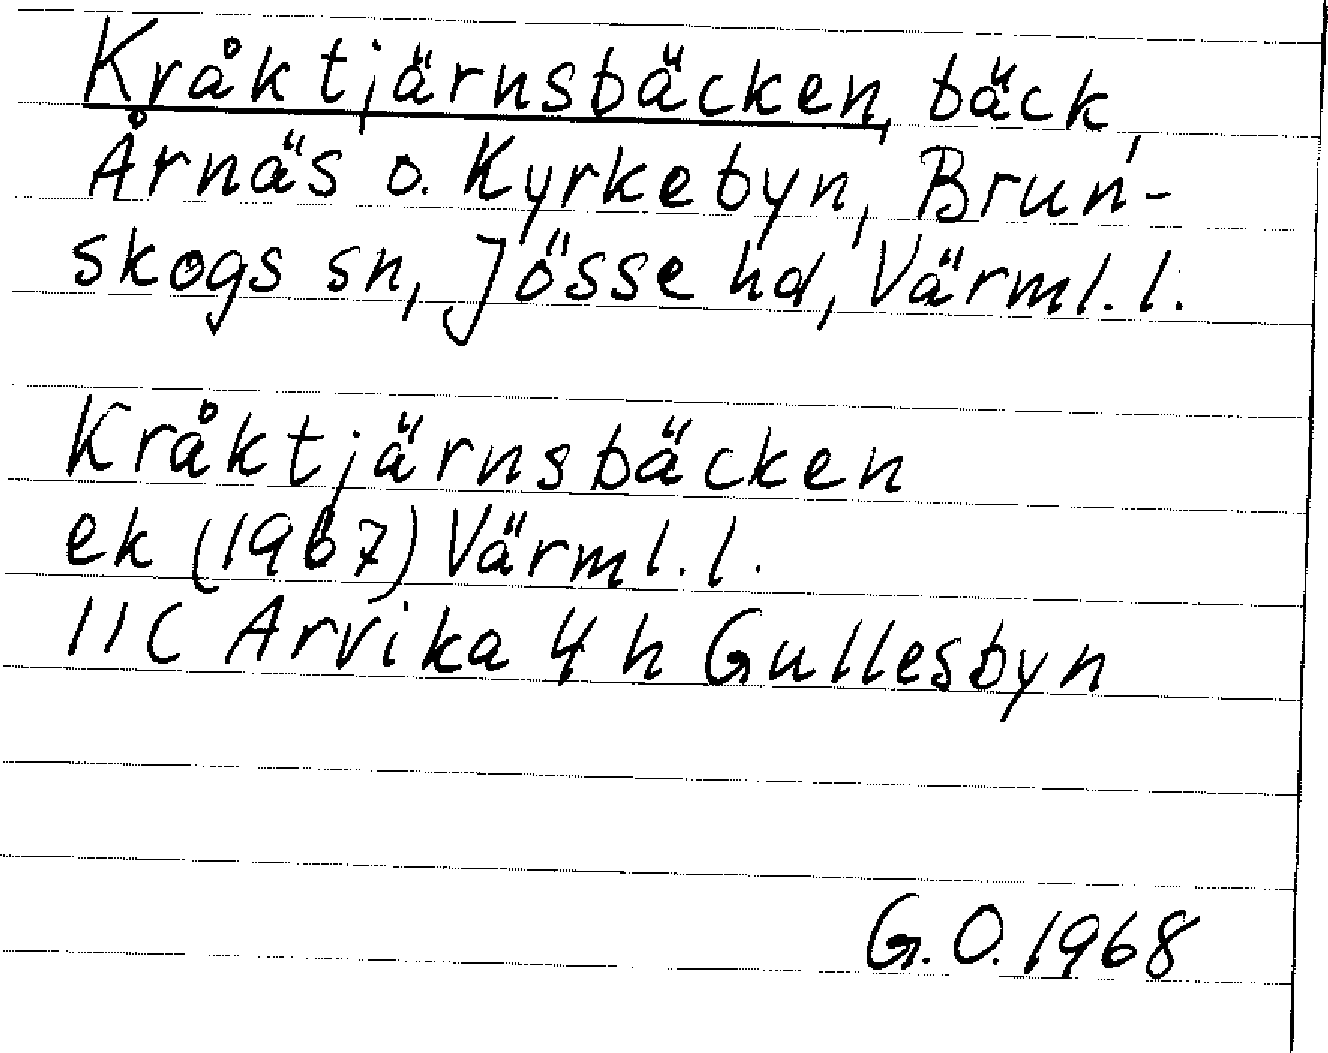 Kråktjärnsbäcken, bäck,
Årnäs o. Kyrkebyn, Brun-
skogs sn, Jösse hd, Värml. l.
Kråktjärnsbäcken
ek (1967) Värml. l.
11C Arvika 4 h Gullesbyn
G. O. 1968